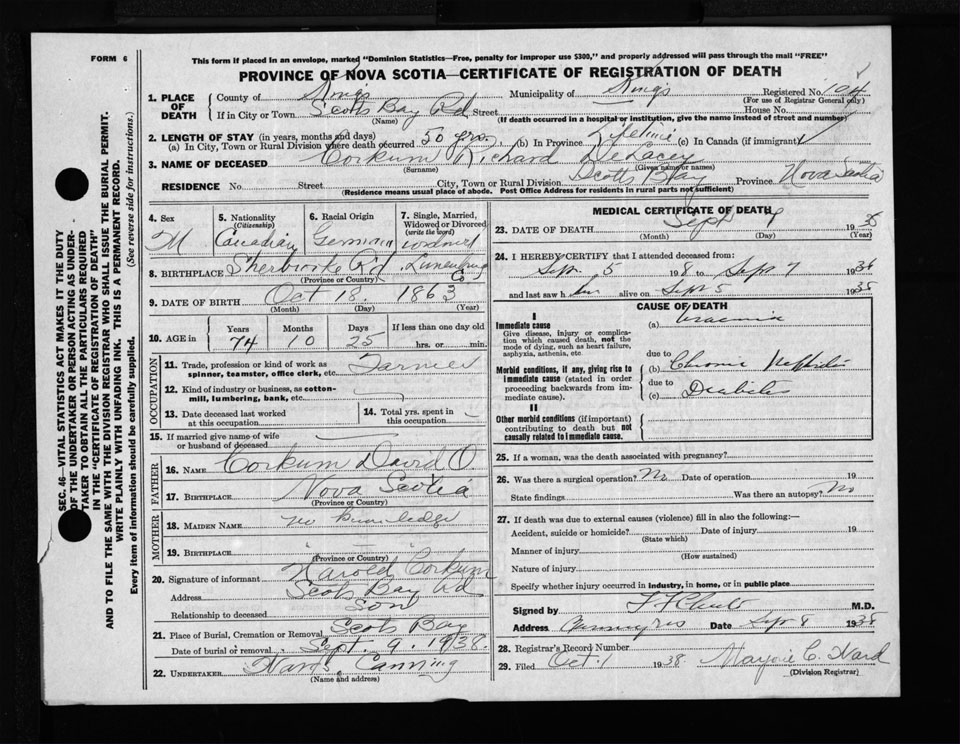 FORM 6
This form if placed in an envelope, marked "Dominion Statistics—Free, penalty for improper use $300," and properly addressed will pass through the mail "FREE"
PROVINCE OF NOVA SCOTIA—CERTIFICATE OF REGISTRATION OF DEATH
1. PLACE OF DEATH County of Kings Municipality of Kings Registered No. 104
(For use of Registrar General only)
If in City or Town Scots Bay Rd Street House No.
(Name) (If death occurred in a hospital or institution, give the name instead of street and number)
2. LENGTH OF STAY (in years, months and days)
(a) In City, Town or Rural Division where death occurred 50 yrs. (b) In Province Lifetime (c) In Canada (if immigrant)
3. NAME OF DECEASED Corkum Richard DeLacey
(Surname) (Given name or names)
RESIDENCE No. Street City, Town or Rural Division Scotts Bay Province Nova Scotia
(Residence means usual place of abode. Post Office Address for residents in rural parts not sufficient)
4. Sex M
5. Nationality (Citizenship) Canadian
6. Racial Origin German
7. Single, Married, Widowed or Divorced (write the word) widowed
8. BIRTHPLACE Sherbrooke R'd, Lunenburg Co
(Province or Country)
9. DATE OF BIRTH Oct 18 1863
(Month) (Day) (Year)
10. AGE in Years 74 Months 10 Days 25 If less than one day old hrs. or min.
OCCUPATION
11. Trade, profession or kind of work as spinner, teamster, office clerk, etc. Farmer
12. Kind of industry or business, as cotton-mill, lumbering, bank, etc.
13. Date deceased last worked at this occupation
14. Total yrs. spent in this occupation
15. If married give name of wife or husband of deceased
FATHER
16. NAME Corkum David O.
17. BIRTHPLACE Nova Scotia
(Province or Country)
MOTHER
18. MAIDEN NAME no knowledge
19. BIRTHPLACE
(Province or Country)
20. Signature of informant Harold Corkum
Address Scots Bay Rd
Relationship to deceased Son
21. Place of Burial, Cremation or Removal Scots Bay
Date of burial or removal Sept. 9. 1938.
22. UNDERTAKER Canning
(Name and address)
MEDICAL CERTIFICATE OF DEATH
23. DATE OF DEATH Sept 7 38
(Month) (Day) (Year)
24. I HEREBY CERTIFY that I attended deceased from:
Sept 5 1938 to Sept 7 1938
and last saw him alive on Sept 5 1938
CAUSE OF DEATH
I
Immediate cause (a) Uraemia
Give disease, injury or complication which caused death, not the mode of dying, such as heart failure, asphyxia, asthenia, etc.
due to
Morbid conditions, if any, giving rise to immediate cause (stated in order proceeding backwards from immediate cause).
(b) Chronic Nephritis
due to
(c) Diabetes
II
Other morbid conditions (if important) contributing to death but not causally related to immediate cause.
25. If a woman, was the death associated with pregnancy?
26. Was there a surgical operation? No Date of operation 19
State findings Was there an autopsy? No
27. If death was due to external causes (violence) fill in also the following:—
Accident, suicide or homicide? Date of injury 19
(State which)
Manner of injury
(How sustained)
Nature of injury
Specify whether injury occurred in industry, in home, or in public place
Signed by M.D.
Address Date Sept 8 1938
28. Registrar's Record Number
29. Filed Oct. 1 1938. Marjorie C. Ward
(Division Registrar)
SEC. 46—VITAL STATISTICS ACT MAKES IT THE DUTY
OF THE UNDERTAKER OR PERSON ACTING AS UNDERTAKER
TO OBTAIN ALL THE PARTICULARS REQUIRED
IN THE "CERTIFICATE OF REGISTRATION OF DEATH"
AND TO FILE THE SAME WITH THE DIVISION REGISTRAR WHO SHALL ISSUE THE BURIAL PERMIT.
WRITE PLAINLY WITH UNFADING INK. THIS IS A PERMANENT RECORD.
Every item of information should be carefully supplied. (See reverse side for instructions.)